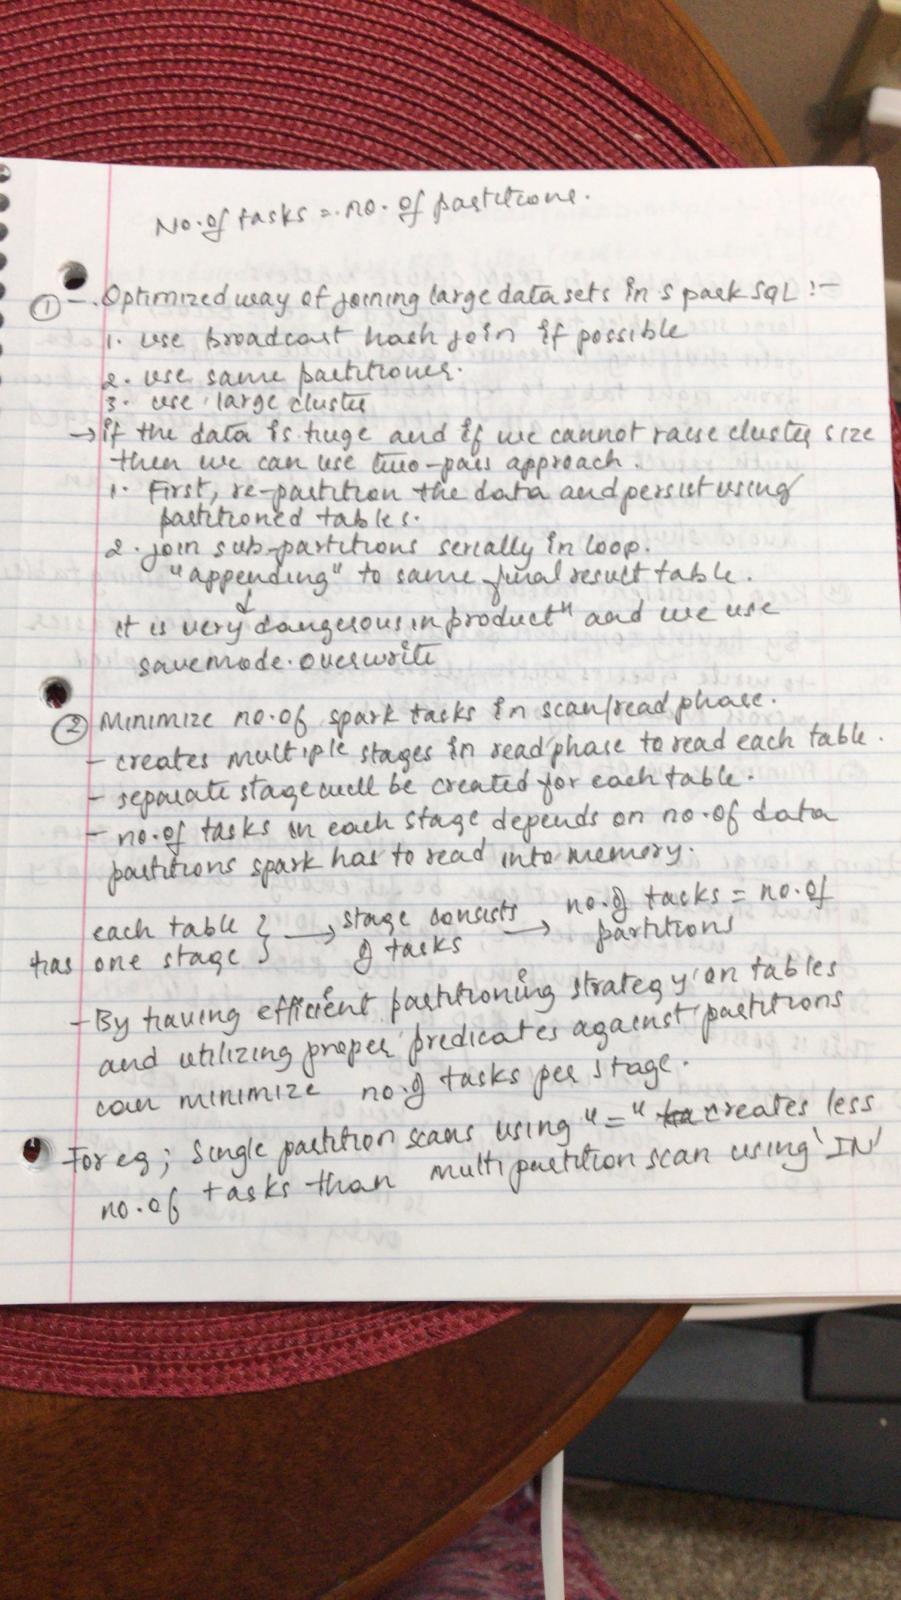 No. of tasks = no. of partitions.
① -. Optimized way of joining large data sets in spark SQL :-
1. use broadcast hash join if possible
2. use same partitioner.
3. use large cluster
→ if the data is huge and if we cannot raise cluster size
then we can use two-pass approach.
1. First, re-partition the data and persist using
partitioned tables.
2. join sub-partitions serially in loop.
"appending" to same final result table.
↓
it is very dangerous in productn and we use
savemode.overwrite
② Minimize no. of spark tasks in scan/read phase.
- creates multiple stages in read phase to read each table.
- separate stage will be created for each table.
- no. of tasks in each stage depends on no. of data
partitions spark has to read into memory.
each table } → stage consists → no. of tasks = no. of
has one stage } of tasks partitions
- By having efficient partitioning strategy on tables
and utilizing proper predicates against partitions
can minimize no. of tasks per stage.
For eg; Single partition scans using "=" creates less
no. of tasks than multi partition scan using 'IN'